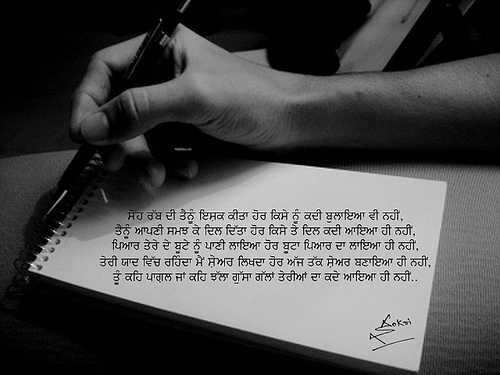 ਸੋਂਹ ਰੱਬ ਦੀ ਤੈਨੂੰ ਇਸ਼ਕ ਕੀਤਾ ਹੋਰ ਕਿਸੇ ਨੂੰ ਕਦੀ ਬੁਲਾਇਆ ਵੀ ਨਹੀਂ,
ਤੈਨੂੰ ਆਪਣੀ ਸਮਝ ਕੇ ਦਿਲ ਦਿੱਤਾ ਹੋਰ ਕਿਸੇ ਤੇ ਦਿਲ ਕਦੀ ਆਇਆ ਹੀ ਨਹੀਂ,
ਪਿਆਰ ਤੇਰੇ ਦੇ ਬੂਟੇ ਨੂੰ ਪਾਣੀ ਲਾਇਆ ਹੋਰ ਬੂਟਾ ਪਿਆਰ ਦਾ ਲਾਇਆ ਹੀ ਨਹੀਂ,
ਤੇਰੀ ਯਾਦ ਵਿੱਚ ਰਹਿੰਦਾ ਮੈਂ ਸ਼ੇਅਰ ਲਿਖਦਾ ਹੋਰ ਅੱਜ ਤੱਕ ਸ਼ੇਅਰ ਬਣਾਇਆ ਹੀ ਨਹੀਂ,
ਤੂੰ ਕਹਿ ਪਾਗਲ ਜਾਂ ਕਹਿ ਝੱਲਾ ਗੁੱਸਾ ਗੱਲਾਂ ਤੇਰੀਆਂ ਦਾ ਕਦੇ ਆਇਆ ਹੀ ਨਹੀਂ..